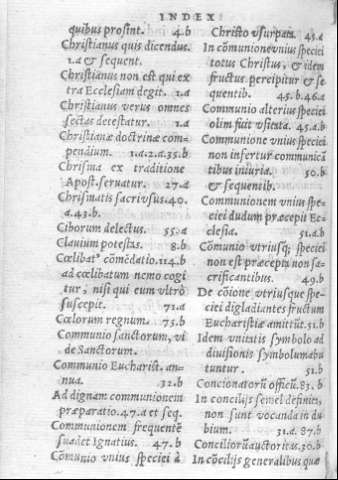 INDEX
quibus prosint. 4.b
Christianus quis dicendus.
1.a & sequent.
Christianus non est qui ex
tra Ecclesiam degit. 1.a
Christianus verus omnes
sectas detestatur. 1.a
Christianæ doctrinæ com-
pendium. 1.a.2.a.35.b
Chrisma ex traditione
Apost. servatur. 27.a
Chrismatis sacri vsus. 40.
a.43.b
Ciborum delectus. 55.a
Clauium potestas. 8.b
Cœlibat⁹ cõmẽdatio. 114.b
ad cœlibatum nemo cogi
tur, nisi qui eum vltrò
suscepit. 71.a
Cœlorum regnum. 75.b
Communio sanctorum, vi
de Sanctorum.
Communio Eucharist. an-
nua. 32.b
Ad dignam communionem
præparatio. 47.a et seq.
Communionem frequentẽ
suadet Ignatius. 47.b
Cõmunio vnius speciei à
Christo vsurpata. 45.a
In cõmunione vnius speciei
totus Christus, & idem
fructus percipitur & se
quentib. 45.b.46.a
Communio alterius speciei
olim fuit vsitata. 45.a.b
Communione vnius speciei
non infertur communicã
tibus iniuria. 50.b
& sequentib.
Communionem vnius spe-
ciei dudum præcepit Ec-
clesia. 51.a.b
Cõmunio vtriusq; speciei
non est præcepta non sa-
crificantibus. 49.b
De cõione vtriusque spe-
ciei digladiantes fructum
Eucharistiæ amittũt. 51.b
Idem vnitatis symbolo ad
diuisionis symbolum abu
tuntur. 51.b
Concionatorũ officiũ. 83.b
In concilijs semel definita,
non sunt vocanda in du
bium. 31.a.87.b
Conciliorũ auctoritas. 30.b
In cõcilijs generalibus quæ